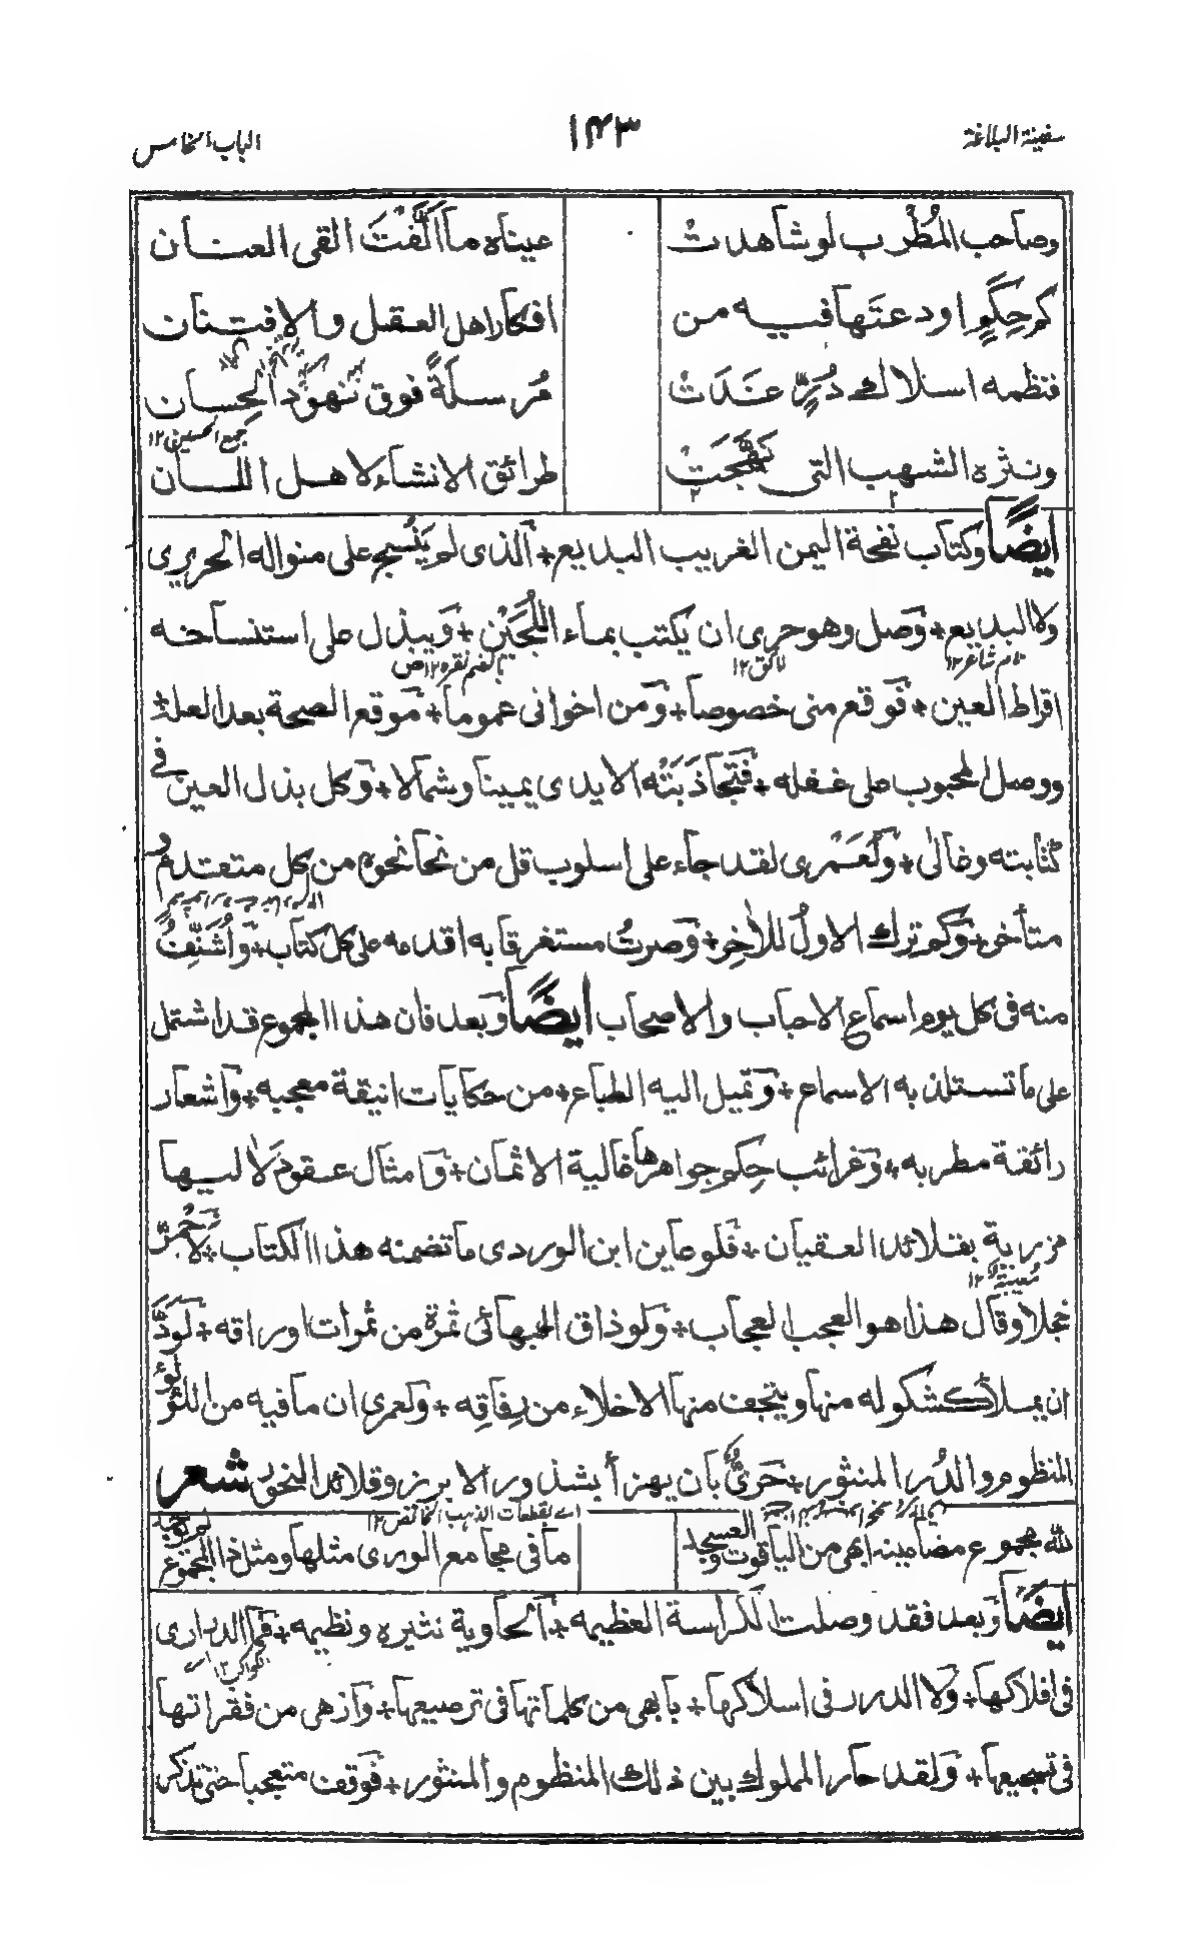 سفينة البلاغة
١٤٣
الباب الخامس
وصاحب المُطْرب لو شاهدتْ عيناه ما اَلَّفْتَ القى العنان
كم حِكَمٍ اودعتَها فيه من افكار اهل العقل والافتنان
فنظمه اسلاك دُرٍّ غَدَتْ مُرسلةً فوق نهود الحِسان
جمع الحسين ١٢
ونثره الشهب التى نَهَّجَتْ طرائق الانشاء لاهل اللسان
ايضًا وكتاب نفحة اليمن الغريب البديع + الذى لم يُنسج على منواله الحريرى
ولا البديع + وَصل وهو حرى ان يكتب بماء اللُّجَيْن + وَيبذل على استنساخه
نام شاعر ١٢ لائق ١٢ بالضم نقره ١٢ ص
اقراط العين + فَوقع منى خصوصا + وَمن اخوانى عموما + مَوقع الصحة بعد العلة +
ووصل المحبوب على غفله + فَتَجاذَبَتْه الايدى يمينا وشمالا + وَكل بذل العين فى
كتابته وغالى + وَلَعَمرى لقد جاء على اسلوب قل من نحا نحوه من كل متقدم و
متأخر + وَكم ترك الاولُ للاٰخِر + وَصرتُ مستغرقا به اقدمه على كل كتاب + وَاُشَنِّفُ
منه فى كل يوم اسماع الاحباب والاصحاب ايضًا وَبعد فان هذا المجموع قد اشتمل
على ما تستلذ به الاسماع + وَتميل اليه الطباع + من حكايات انيقة معجبه + وَاشعار
رائقة مطربه + وَغرائب حِكم جواهرها غالية الاثمان + وَامثال عقود لَاٰليها
مزرية بقلائد العقيان + فَلو عاين ابن الوردى ما تضمنه هذا الكتاب + لَاحْمَرَّ
معيبة ١٢
خجلا وقال هذا هو العجب العجاب + وَلو ذاق البهائى ثمرة من ثمرات اوراقه + لَوَدَّ
ان يملأ كشكوله منها ويتحف منها الاخلاء من رِفاقِه + وَلعمرى ان ما فيه من اللؤلؤ
المنظوم والدُر المنثور + حَرىٌّ بان يهزأ بشذور الابريز وقلائد النحور شعر
اے بقطعات الذهب الخالص ١٢
لله مجموع مضامينه ابهى من الياقوت والعسجد ما فى مجامع الورى مثلها ومثل ذا المجموع لم يوجد
ايضًا وَبعد فقد وصلت الكراسة العظيمه + اَلحاوية نثيره ونظيمه + فَما الدرارى
كواكب ١٢
فى افلاكها + وَلا الدرر فى اسلاكها + بابهى من كلماتها فى ترصيعها + وَازهى من فقراتها
فى تسجيعها + وَلقد حار المملوك بين ذلك المنظوم والمنثور + فَوقف متعجبا حتى تذكر